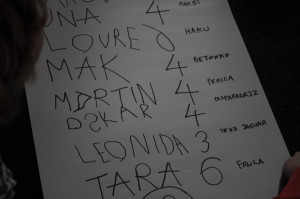 UNA 4
LOURE
HAKU
MAK 4 BETONKO
MARTIN 4 PERICA
OSKAR 4 DISPARAGJZ
LEONIDA 3 DEUX JAGUAR
TARA 6 FRULA